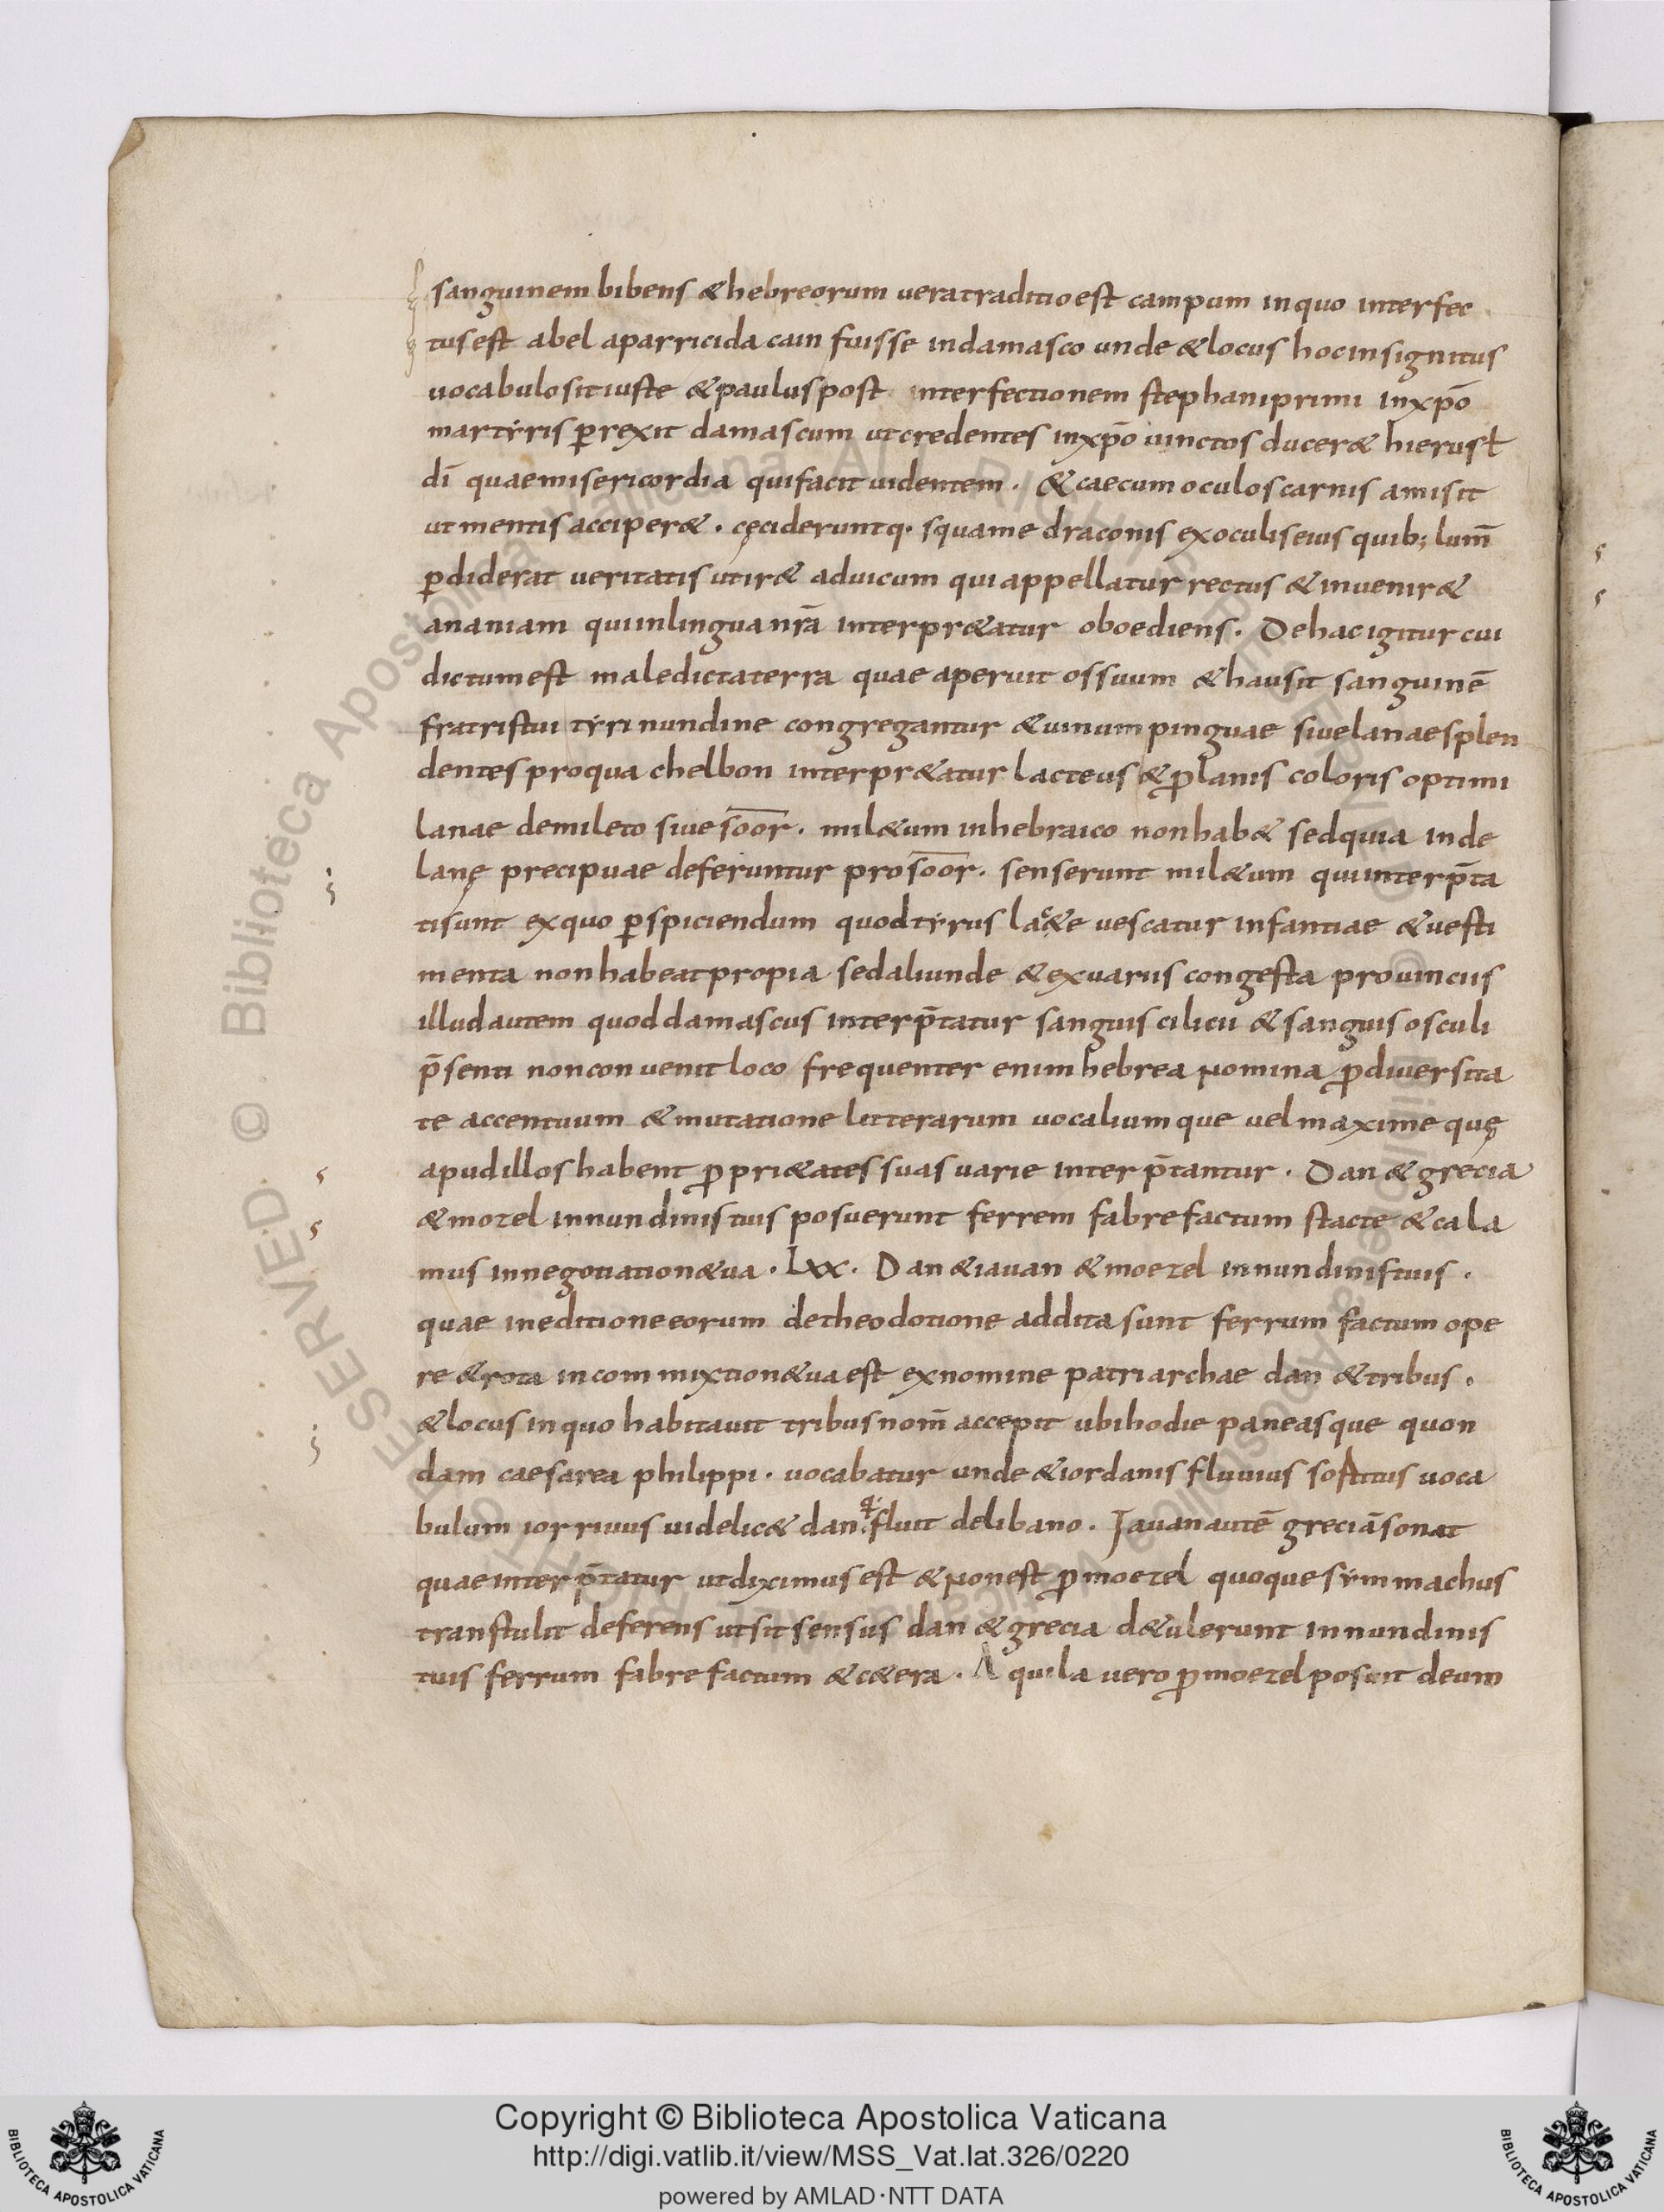 sanguinem bibens & hebreorum uera traditio est campum in quo interfec
tus est abel a parricida cain fuisse in damasco unde & locus hoc insignitus
uocabulo sit iuste & paulus post interfectionem stephani primi in xp̄o
martyris ꝑrexit damascum ut credentes in xp̄o uinctos ducer& hierusł
dī quae misericordia qui facit uidentem . & caecum oculos carnis amisit
ut mentis acciper& . cęciderunt q· squame draconis ex oculis eius quib; lum̄
ꝑdiderat ueritatis ut ir& ad uicum qui appellatur rectus & inuenir&
ananiam qui in lingua nr̄a interpr&atur oboediens . De hac igitur cui
dictum est maledicta terra quae aperuit os suum & hausit sanguinē
fratris tui tyri nundine congregantur & uinum pinguae siue lanae splen
dentes pro qua chelbon interpr&atur lacteus & ꝓ lanis coloris optimi
lanae de mileto siue soor . mil&um in hebraico non hab& sed quia inde
lanę precipuae deferuntur pro soor . senserunt mil&um qui interp̄ta
ti sunt ex quo ꝑspiciendum quod tyrus lac&e uescatur infantiae & uesti
menta non habeat propia sed aliunde & ex uariis congesta prouinciis
illud autem quod damascus interp̄tatur sanguis cilicii & sanguis osculi
p̄senti non conuenit loco frequenter enim hebrea nomina ꝓ diuersita
te accentuum & mutatione litterarum uocalium que uel maxime quę
apud illos habent ꝓpri&ates suas uarie interp̄tantur . Dan & grecia
& mozel in nundinis tuis posuerunt ferrem fabrefactum stacte & cala
mus in negotiation& ua . Lxx . Dan & iauan & moezel in nundinis tuis .
quae in editione eorum de theodotione addita sunt ferrum factum ope
re & rota in commixtion& ua est ex nomine patriarchae dan & tribus .
& locus in quo habitauit tribus nom̄ accepit ubi hodie paneas que quon
dam caesarea philippi . uocabatur unde & iordanis fluuius sortitus uoca
bulum ior riuus uidelic& dan . q̇ fluit de libano . Iauan autē greciā sonat
quae interp̄tatur ut diximus est & non est ꝓ moezel quoque symmachus
transtulit deferens ut sit sensus dan & grecia d&ulerunt in nundinis
tuis ferrum fabrefactum & c&era . Aquila uero ꝓ moezel posuit de um
Copyright © Biblioteca Apostolica Vaticana
http://digi.vatlib.it/view/MSS_Vat.lat.326/0220
powered by AMLAD·NTT DATA